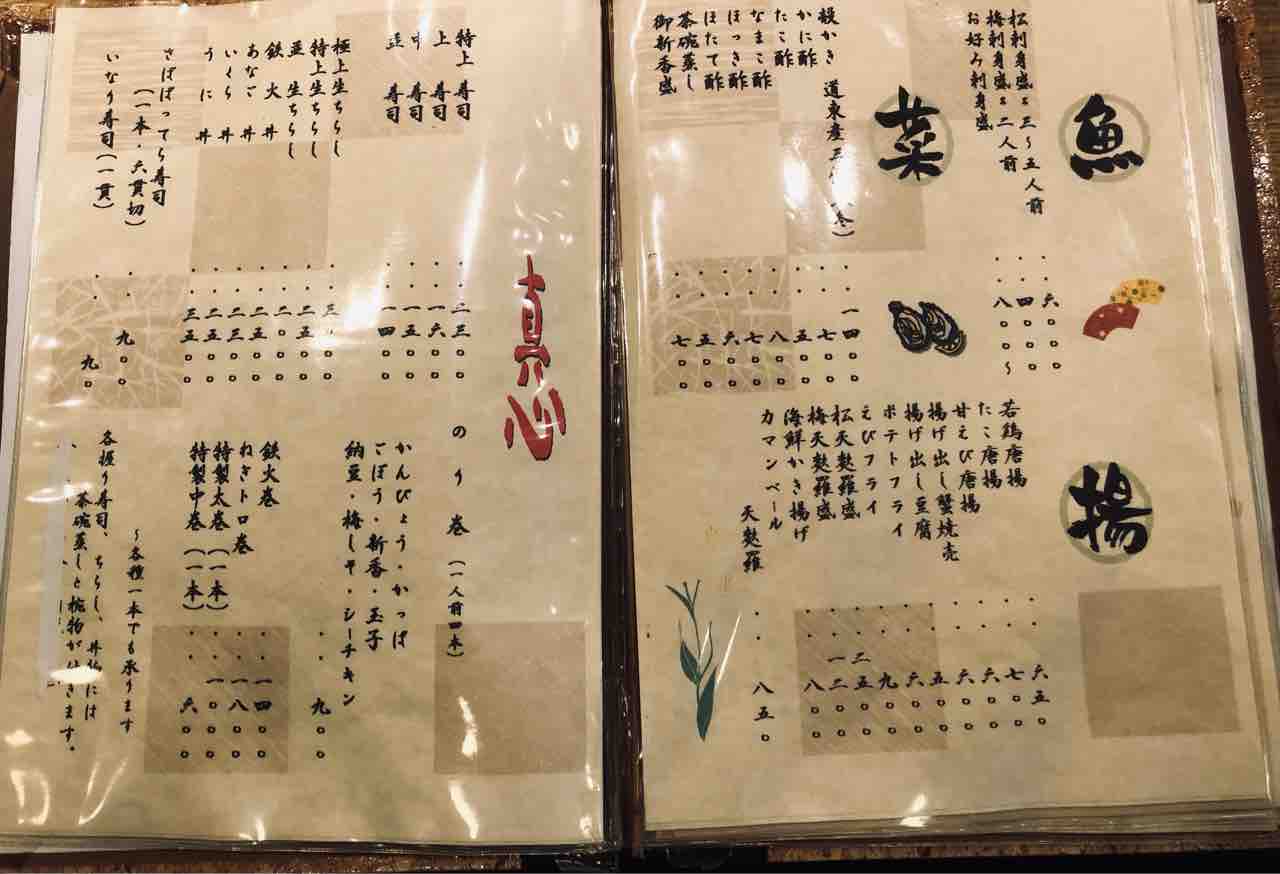 魚
松刺身盛 三〜五人前 ・・六〇〇〇
梅刺身盛 二人前 ・・四〇〇〇
お好み刺身盛 ・・八〇〇〜
菜
殻かき 道東産三 (冬) ・・一四〇〇
かに酢 ・・七〇〇
たこ酢 ・・五〇〇
なまこ酢 ・・八〇〇
ほっき酢 ・・七〇〇
ほたて酢 ・・六〇〇
茶碗蒸し ・・五〇〇
御新香盛 ・・七〇〇
揚
若鶏唐揚 ・・六五〇
たこ唐揚 ・・七〇〇
甘えび唐揚 ・・六〇〇
揚げ出し蟹焼売 ・・六〇〇
揚げ出し豆腐 ・・五〇〇
ポテトフライ ・・六〇〇
えびフライ ・・九〇〇
松天麩羅盛 ・・二五〇〇
梅天麩羅盛 ・・一二〇〇
海鮮かき揚げ ・・八〇〇
カマンベール
天麩羅 ・・八五〇
真心
特上 寿司 ・・二三〇〇
上 寿司 ・・一六〇〇
中 寿司 ・・一五〇〇
並 寿司 ・・一四〇〇
極上生ちらし ・・三〇〇〇
特上生ちらし ・・二五〇〇
並 生ちらし ・・二〇〇〇
鉄火 丼 ・・二五〇〇
あなご 丼 ・・二三〇〇
いくら 丼 ・・二五〇〇
うに 丼 ・・三五〇〇
さばばってら寿司
(一本・六貫切) ・・九〇〇
いなり寿司(一貫) ・・九〇
のり巻(一人前四本)
かんぴょう・かっぱ
ごぼう・新香・玉子
納豆・梅しそ・シーチキン ・・九〇〇
鉄火巻 ・・一四〇〇
ねぎトロ巻 ・・一八〇〇
特製太巻(一本) ・・一〇〇〇
特製中巻(一本) ・・六〇〇
〜各種一本でも承ります
各握り寿司、ちらし、丼物には
茶碗蒸しと椀物が付きます。